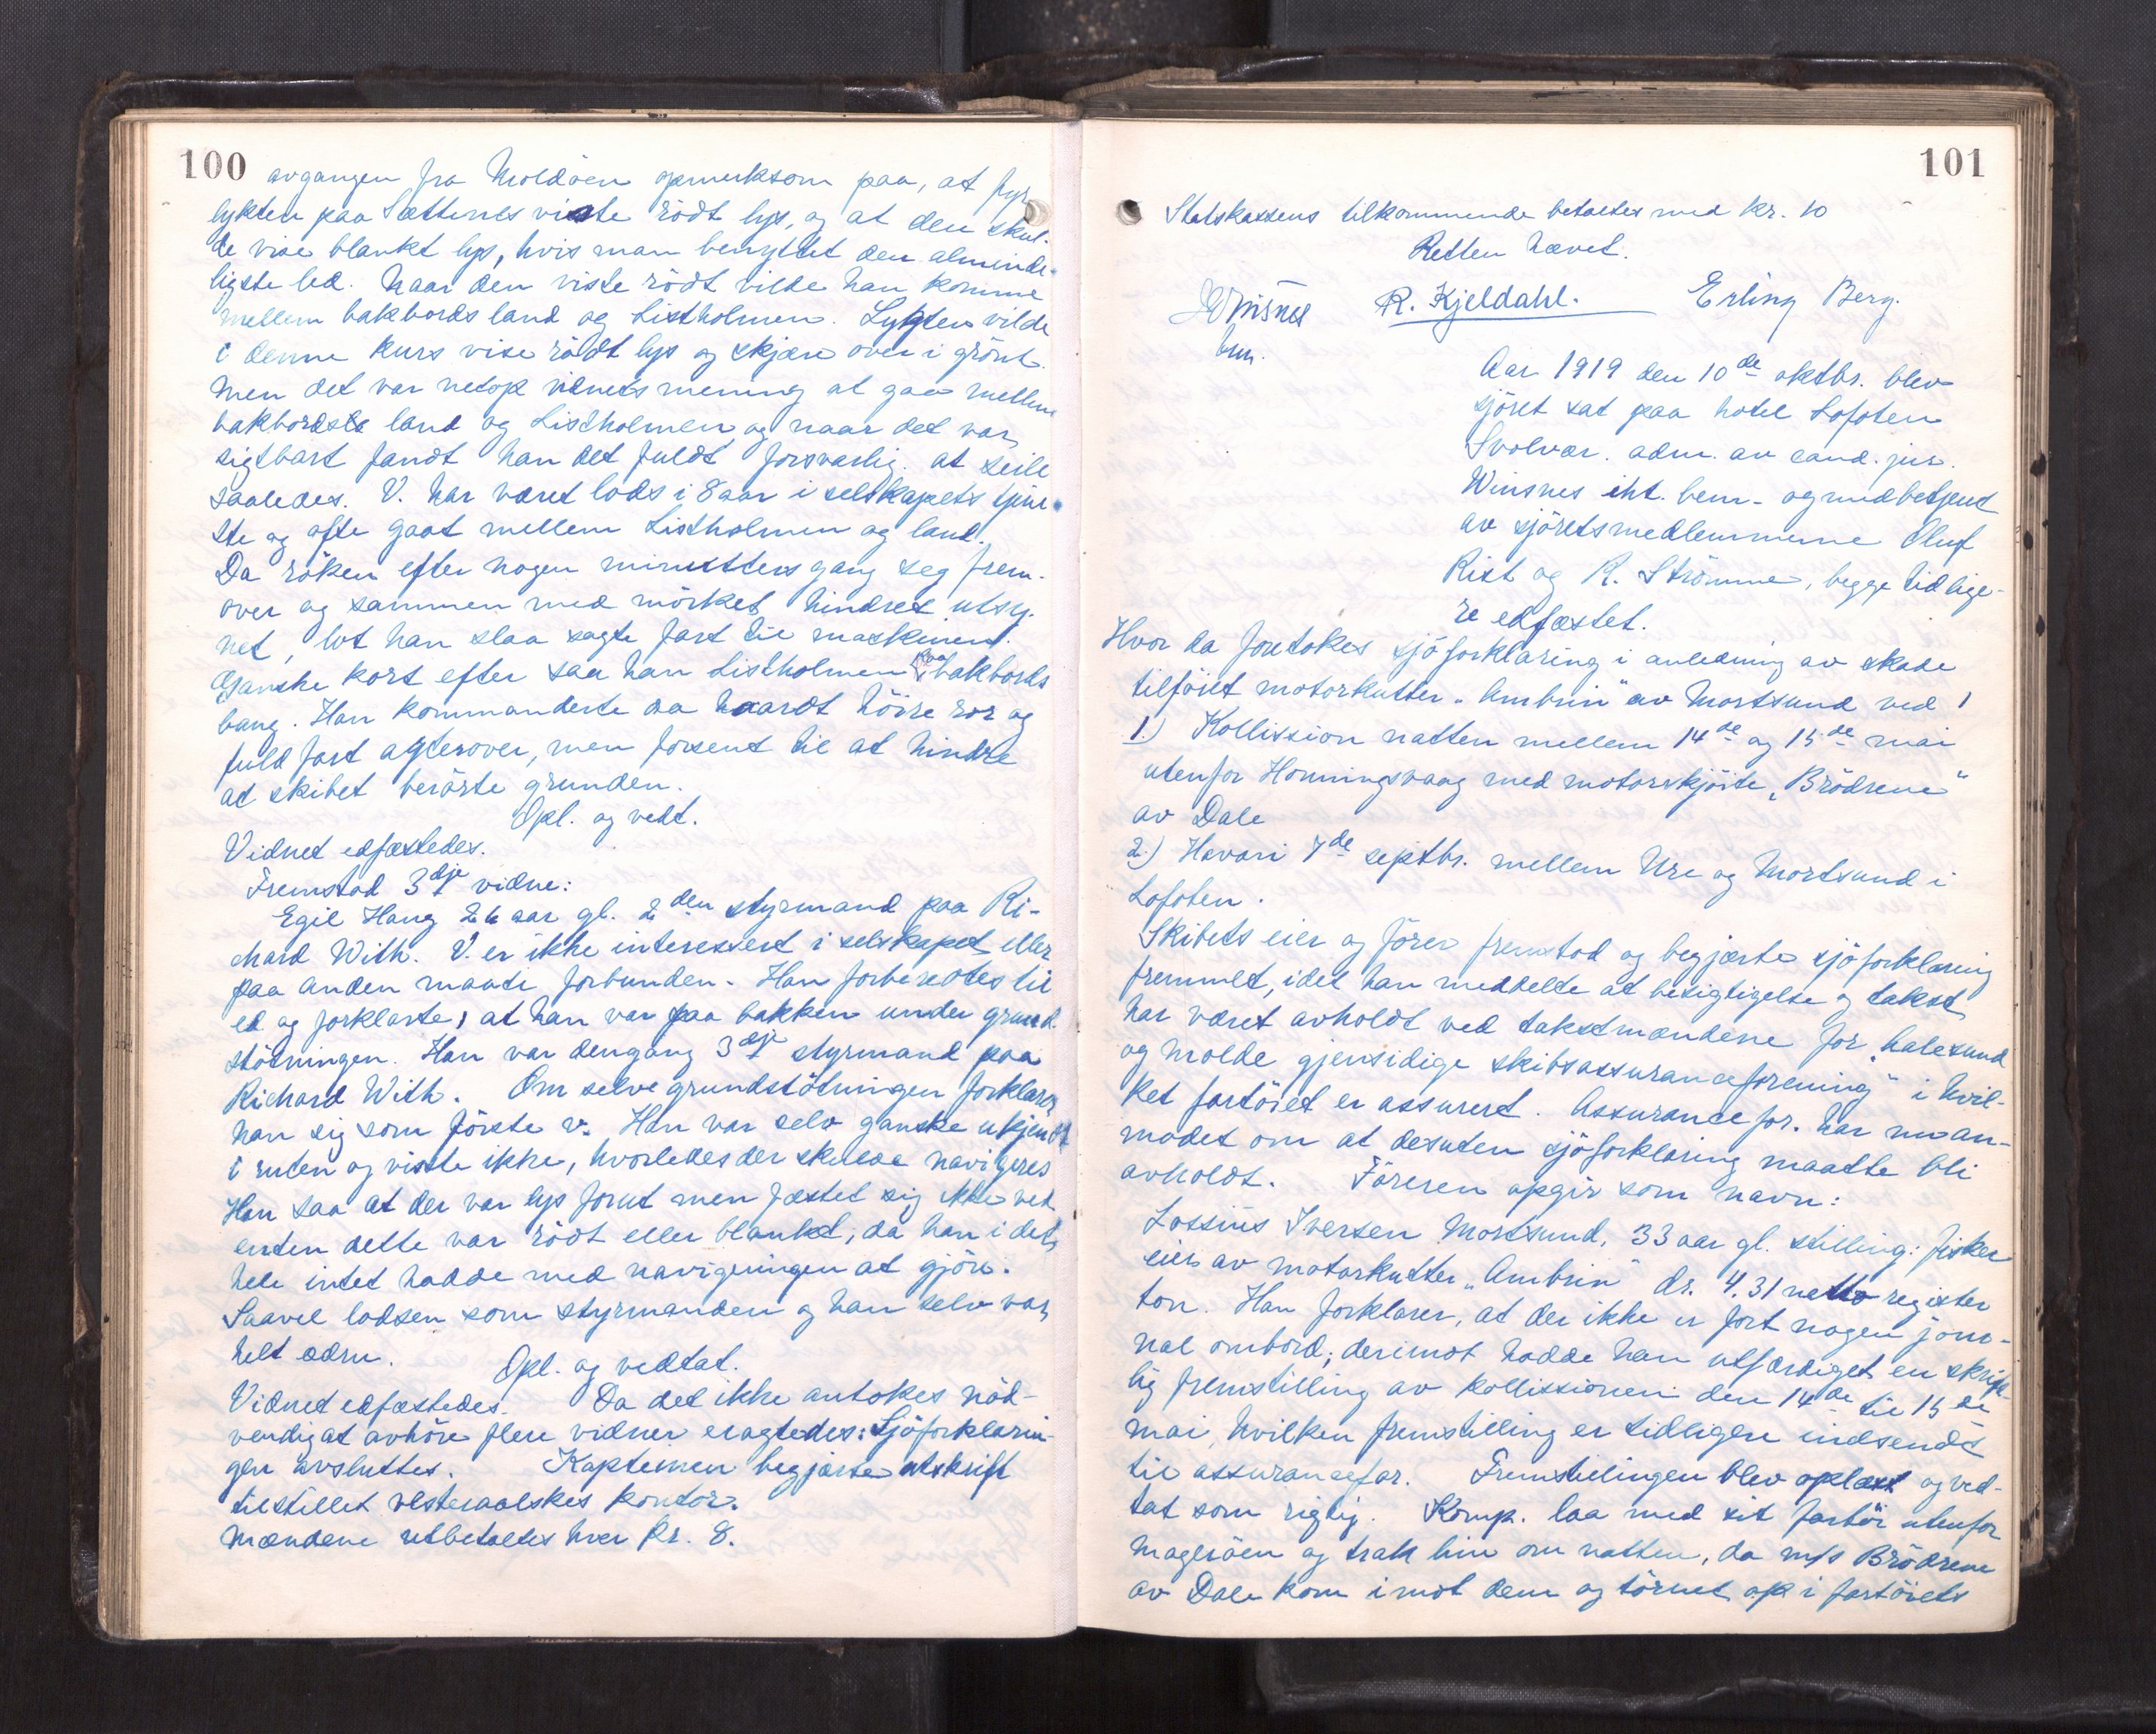 100
avgangen fra Moldöen opmerksom paa, at fyr
lykten paa Sættenes viste rödt lys, og at den skul-
de vise blankt lys, hvis man benyttet den alminde-
ligste led. Naar den viste rödt vilde han komme
mellem bakbords land og Listholmen. Lygten vilde
i denne kurs vise rödt lys og skjære over i grönt.
Men det var netop vidnets mening at gaa mellem
bakbords land og Listholmen og naar det var
sigtbart fandt han det fuldt forsvarlig at seile
saaledes. V. har været lods i 8 aar i selskapets tjene-
ste og ofte gaat mellem Listholmen og land.
Da röken efter nogen minutters gang seg frem-
over og sammen med mörket hindret utsy-
net, lot han slaa sagte fart til maskinen.
Ganske kort efter saa han Listholmen paa bakbords
baug. Han kommanderte da haardt höire ror og
fuld fart agterover, men forsent til at hindre
at skibet berörte grunden.
Opl. og vedt.
Vidnet edfæstedes.
Fremstod 3dje vidne:
Egil Haug 26 aar gl. 2den styrmand paa Ri-
chard With. V. er ikke interessert i selskapet eller
paa anden maate forbunden. Han forberedtes til
ed og forklarte, at han var paa bakken under grund
stötningen. Han var dengang 3dje styrmand paa
Richard With. Om selve grundstötningen forklarer
han sig som förste v. Han var selv ganske ukjendt
i ruten og visste ikke, hvorledes der skulde navigeres
Han saa at der var lys forut men fæstet sig ikke ved
enten dette var rödt eller blankt, da han i det
hele intet hadde med navigeringen at gjöre.
Saavel lodsen som styrmanden og han selv var
helt ædru. Opl. og vedtat.
Vidnet edfæstedes. Da det ikke antokes nöd-
vendig at avhöre flere vidner eragtedes: Sjöforklarin-
gen avsluttes. Kapteinen begjærte utskrift
tilstillet Vesteraalskes kontor.
Mændene utbetaltes hver kr. 8.
101
Statskassens tilkommende betaltes med kr. 10
Retten hævet.
Winsnes R. Kjeldahl. Erling Berg.
bem.
Aar 1919 den 10de oktbr. blev
sjöret sat paa hotel Lofoten
Svolvær. adm. av cand. jur.
Winsnes iht. bem- og medbetjent
av sjöretsmedlemmerne Oluf
Rist og R. Strömme, begge tidlige-
re edfæstet.
Hvor da foretokes sjöforklaring i anledning av skade
tilföiet motorkutter "Ambrin" av Mortsund ved
1) Kollission natten mellem 14de og 15de mai
utenfor Honningsvaag med motorskjöite "Brödrene"
av Dale
2.) Havari 7de septbr. mellem Ure og Mortsund i
Lofoten.
Skibets eier og förer fremstod og begjærte sjöforklaring
fremmet, idet han meddelte at besigtigelse og takst
har været avholdt ved takstmændene for "Aalesund
og Molde gjensidige skibsassuranceforening" i hvil-
ket fartöiet er assurert. Assurancefor. har nu an-
modet om at desuten sjöforklaring maatte bli
avholdt. Föreren opgir som navn:
Lossius Iversen Mortsund, 33 aar gl. stilling: fisker
eier av motorkutter "Ambrin" dr. 4.31 netto register
ton. Han forklarer, at der ikke er fört nogen jour-
nal ombord; derimot hadde han utfærdiget en skrift-
lig fremstilling av kollissionen den 14de til 15de
mai, hvilken fremstilling er tidligere indsendt
til assurancefor. Fremstillingen blev oplæst og ved-
tat som rigtig. Komp. laa med sit fartöi utenfor
Mageröen og trak line om natten, da m/s Brödrene
av Dale kom imot dem og törnet op i fartöiets